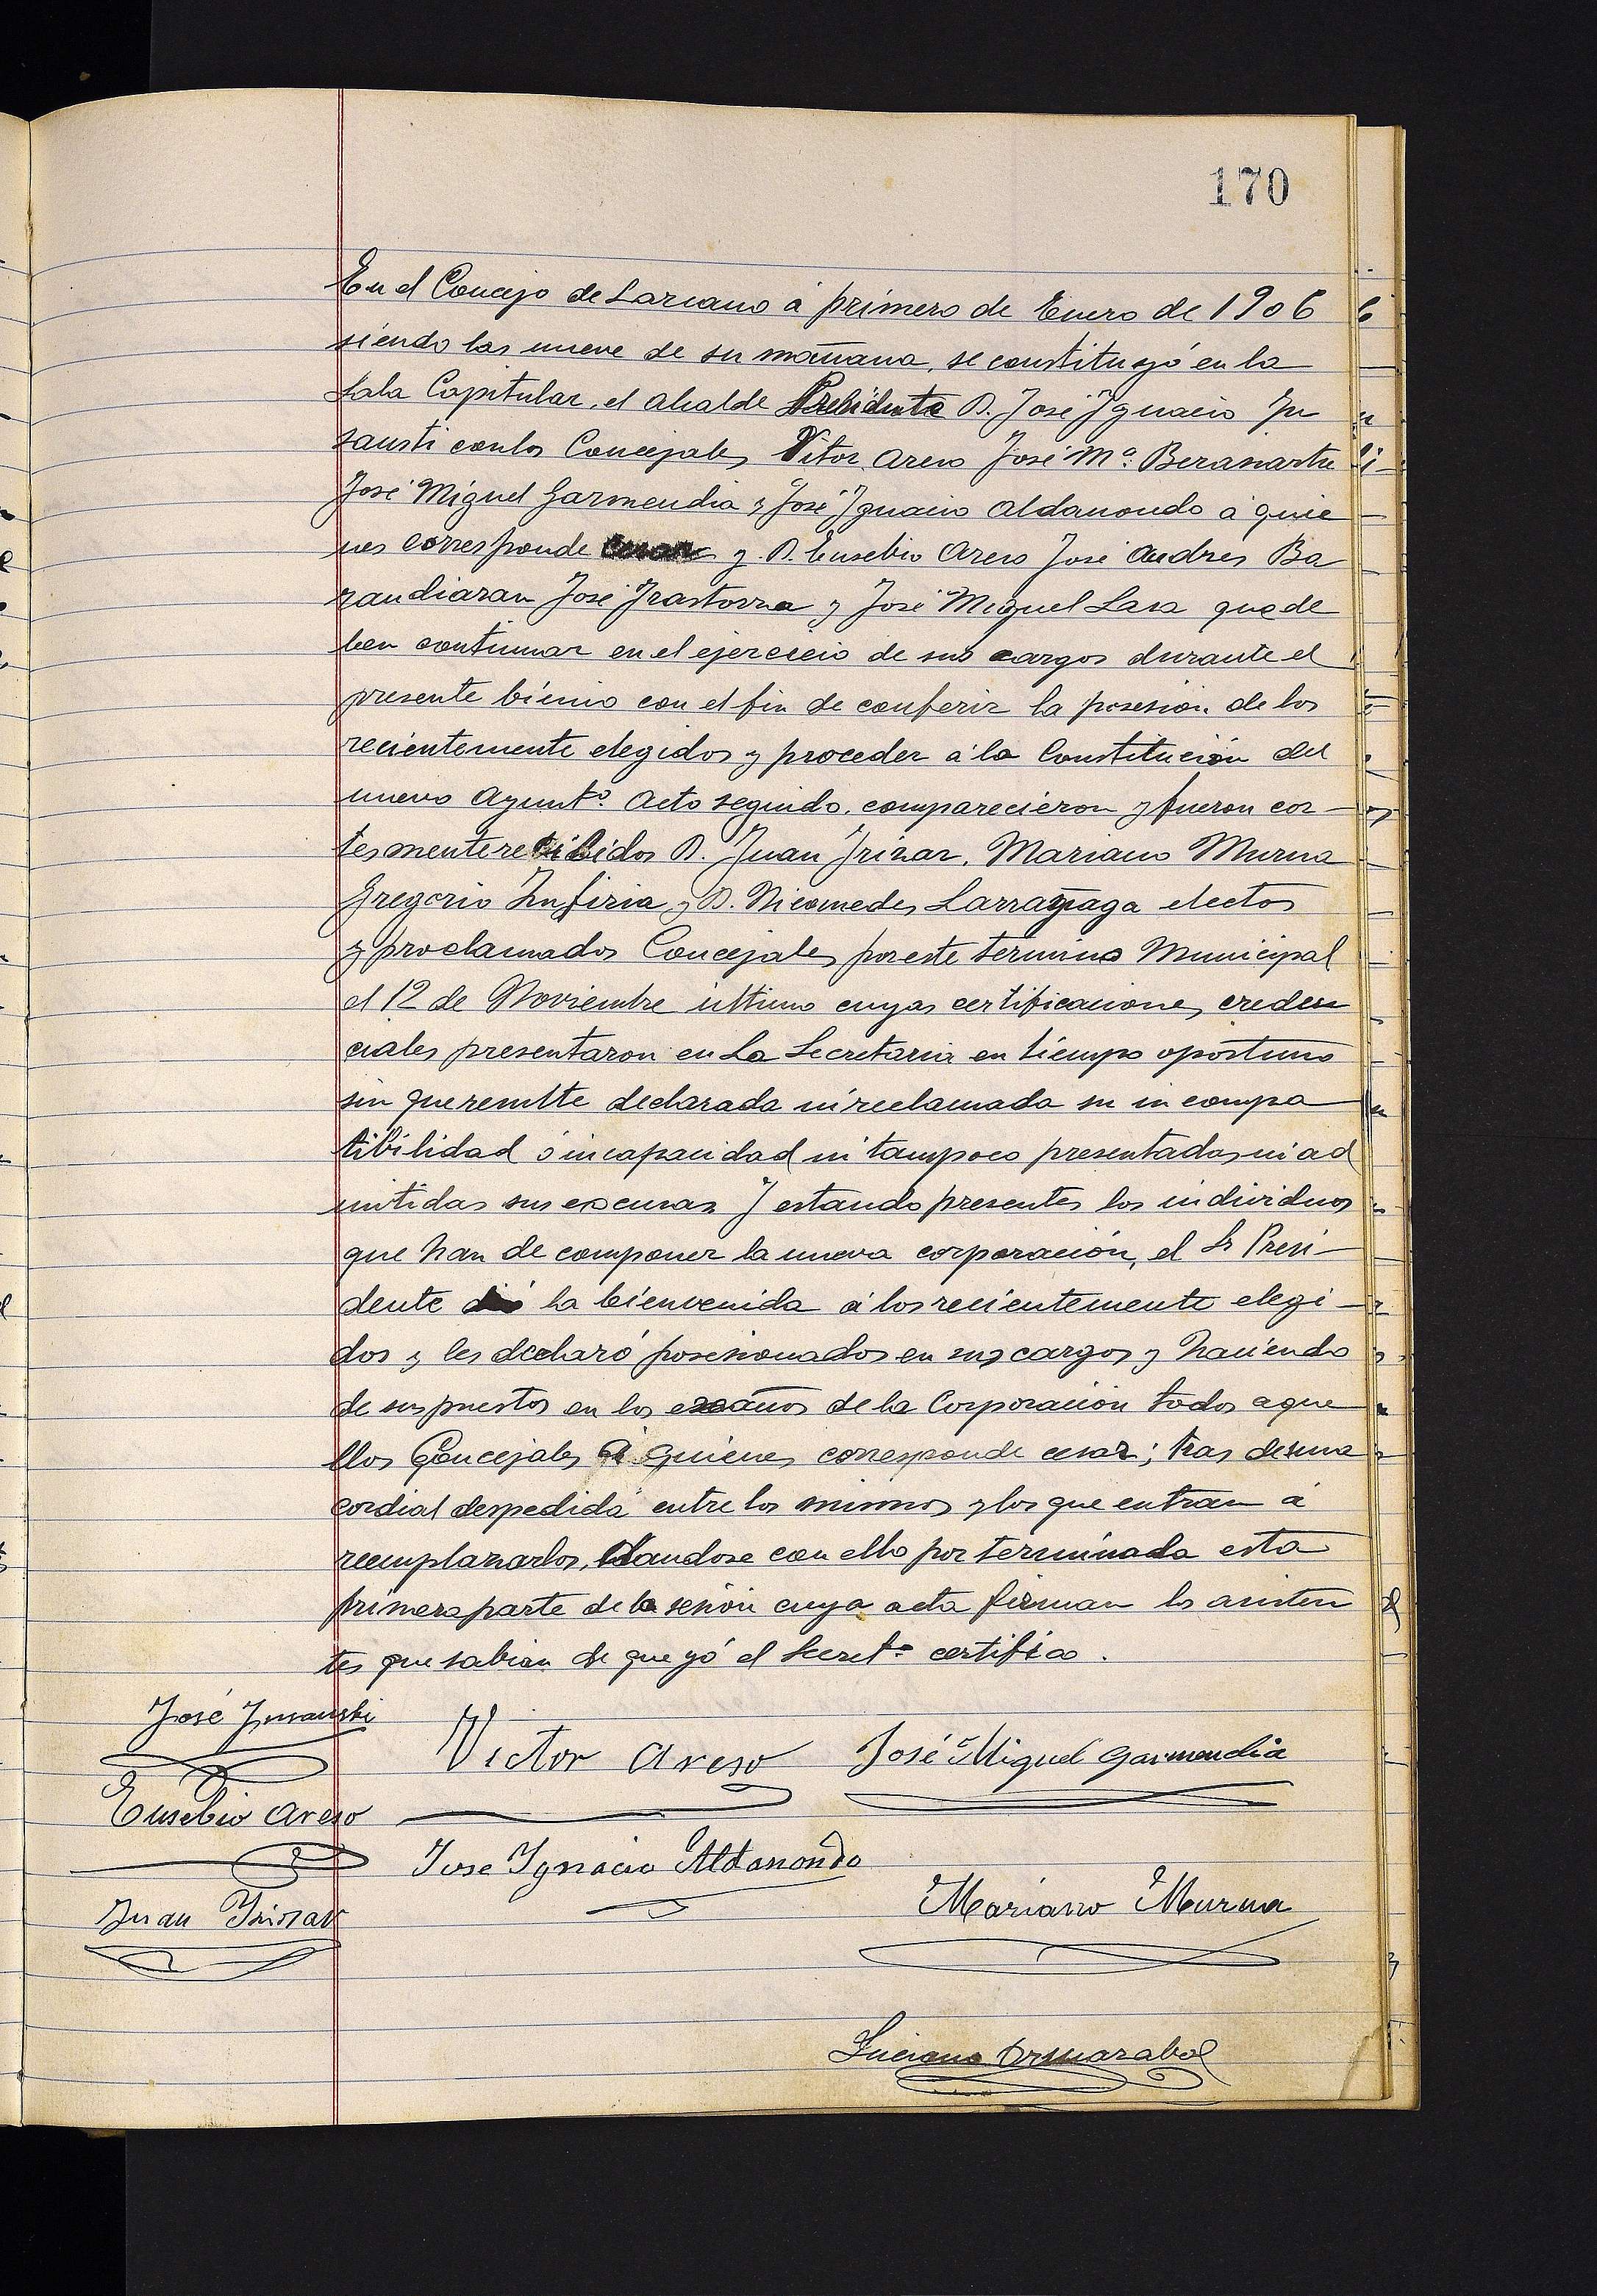 170
En el Concejo de Lazcano á primero de Enero de 1906
siendo las nueve de su mañana, se constituyó en la
Sala Capitular, el Alcalde Presidente D. José Ygnacio Yn
sausti con los Concejales Vitor Areso José Mª Berasartu
José Miguel Garmendia y José Ygnacio Aldanondo á quie
nes corresponde cesar y D. Eusebio Areso José Andres Ba
randiaran José Yrastorza y José Miguel Lasa que de
ben continuar en el ejercicio de sus cargos durante el
presente bienio con el fin de conferir la posesion de los
recientemente elegidos y proceder á la Constitución del
nuevo Ayuntº. Acto seguido, comparecieron y fueron cor-
tesmente recibidos D. Juan Yrizar, Mariano Murua
Gregorio Zufiria y D. Nicomedes Larrañaga electos
y proclamados Concejales por este termino Municipal
el 12 de Noviembre último cuyas certificaciones creden
ciales presentaron en La Secretaria en tiempo oportuno
sin que resulte declarada ni reclamada su incompa
tibilidad ó incapacidad ni tampoco presentadas ni ad
mitidas sus excusas Y estando presentes los individuos
que han de componer la nueva corporación, el Sr Presi-
dente dió la bienvenida á los recientemente elegi-
dos y les declaró posesionados en sus cargos y haciendo
de sus puestos en los escaños de la Corporación todos aque
llos Concejales á quienes corresponde cesar; tras de una
cordial despedida entre los mismos y los que entran á
reemplazarlos, dandose con ello por terminada esta
primera parte de la sesión cuya acta firman los asisten
tes que sabian de que yó el Secretº certifico.
José Ynsausti
Victor Areso
José Miguel Garmendia
Eusebio Areso
Jose Ygnacio Aldanondo
Juan Yrizar
Mariano Murua
Luciano Ormazabal